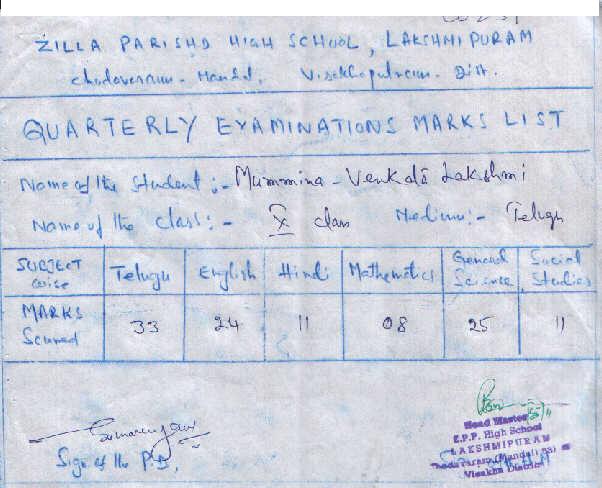 ZILLA PARISHD HIGH SCHOOL, LAKSHMIPURAM
Chodavaram - Mandal. Visakhapatnam - Dist.
QUARTERLY EXAMINATIONS MARKS LIST
Name of the Student :- Mummina - Venkata Lakshmi
Name of the class :- X class Medium :- Telugu
SUBJECT wise Telugu English Hindi Mathematics General Science Social Studies
MARKS Scured 33 24 11 08 25 11
Sign of the
Head Master
Z.P.P. High School
LAKSHMIPURAM
Visakha District